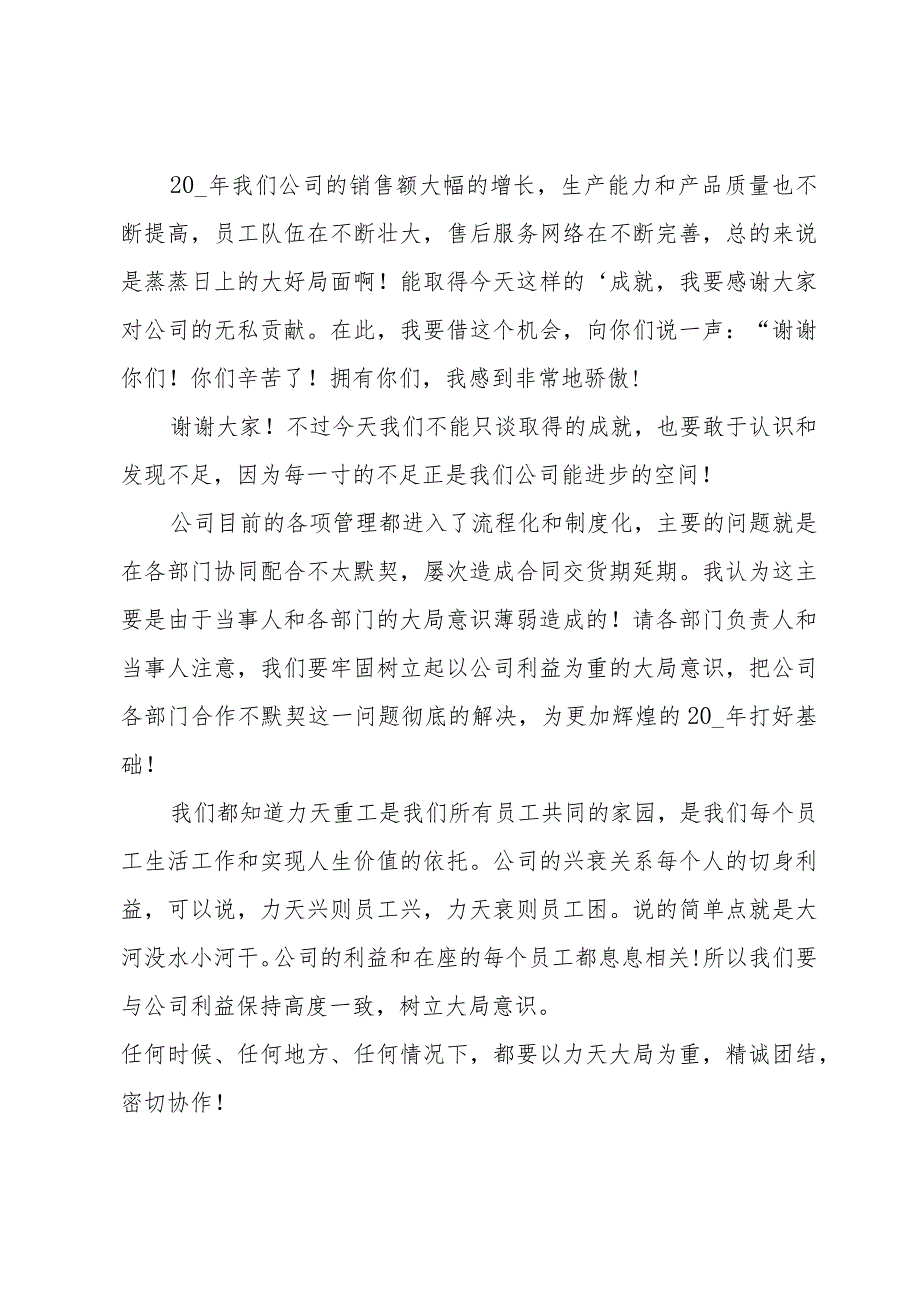 20_年我们公司的销售额大幅的增长，生产能力和产品质量也不
断提高，员工队伍在不断壮大，售后服务网络在不断完善，总的来说
是蒸蒸日上的大好局面啊！能取得今天这样的‘成就，我要感谢大家
对公司的无私贡献。在此，我要借这个机会，向你们说一声：“谢谢
你们！你们辛苦了！拥有你们，我感到非常地骄傲！
谢谢大家！不过今天我们不能只谈取得的成就，也要敢于认识和
发现不足，因为每一寸的不足正是我们公司能进步的空间！
公司目前的各项管理都进入了流程化和制度化，主要的问题就是
在各部门协同配合不太默契，屡次造成合同交货期延期。我认为这主
要是由于当事人和各部门的大局意识薄弱造成的！请各部门负责人和
当事人注意，我们要牢固树立起以公司利益为重的大局意识，把公司
各部门合作不默契这一问题彻底的解决，为更加辉煌的 20_年打好基
础！
我们都知道力天重工是我们所有员工共同的家园，是我们每个员
工生活工作和实现人生价值的依托。公司的兴衰关系每个人的切身利
益，可以说，力天兴则员工兴，力天衰则员工困。说的简单点就是大
河没水小河干。公司的利益和在座的每个员工都息息相关!所以我们要
与公司利益保持高度一致，树立大局意识。
任何时候、任何地方、任何情况下，都要以力天大局为重，精诚团结，
密切协作！